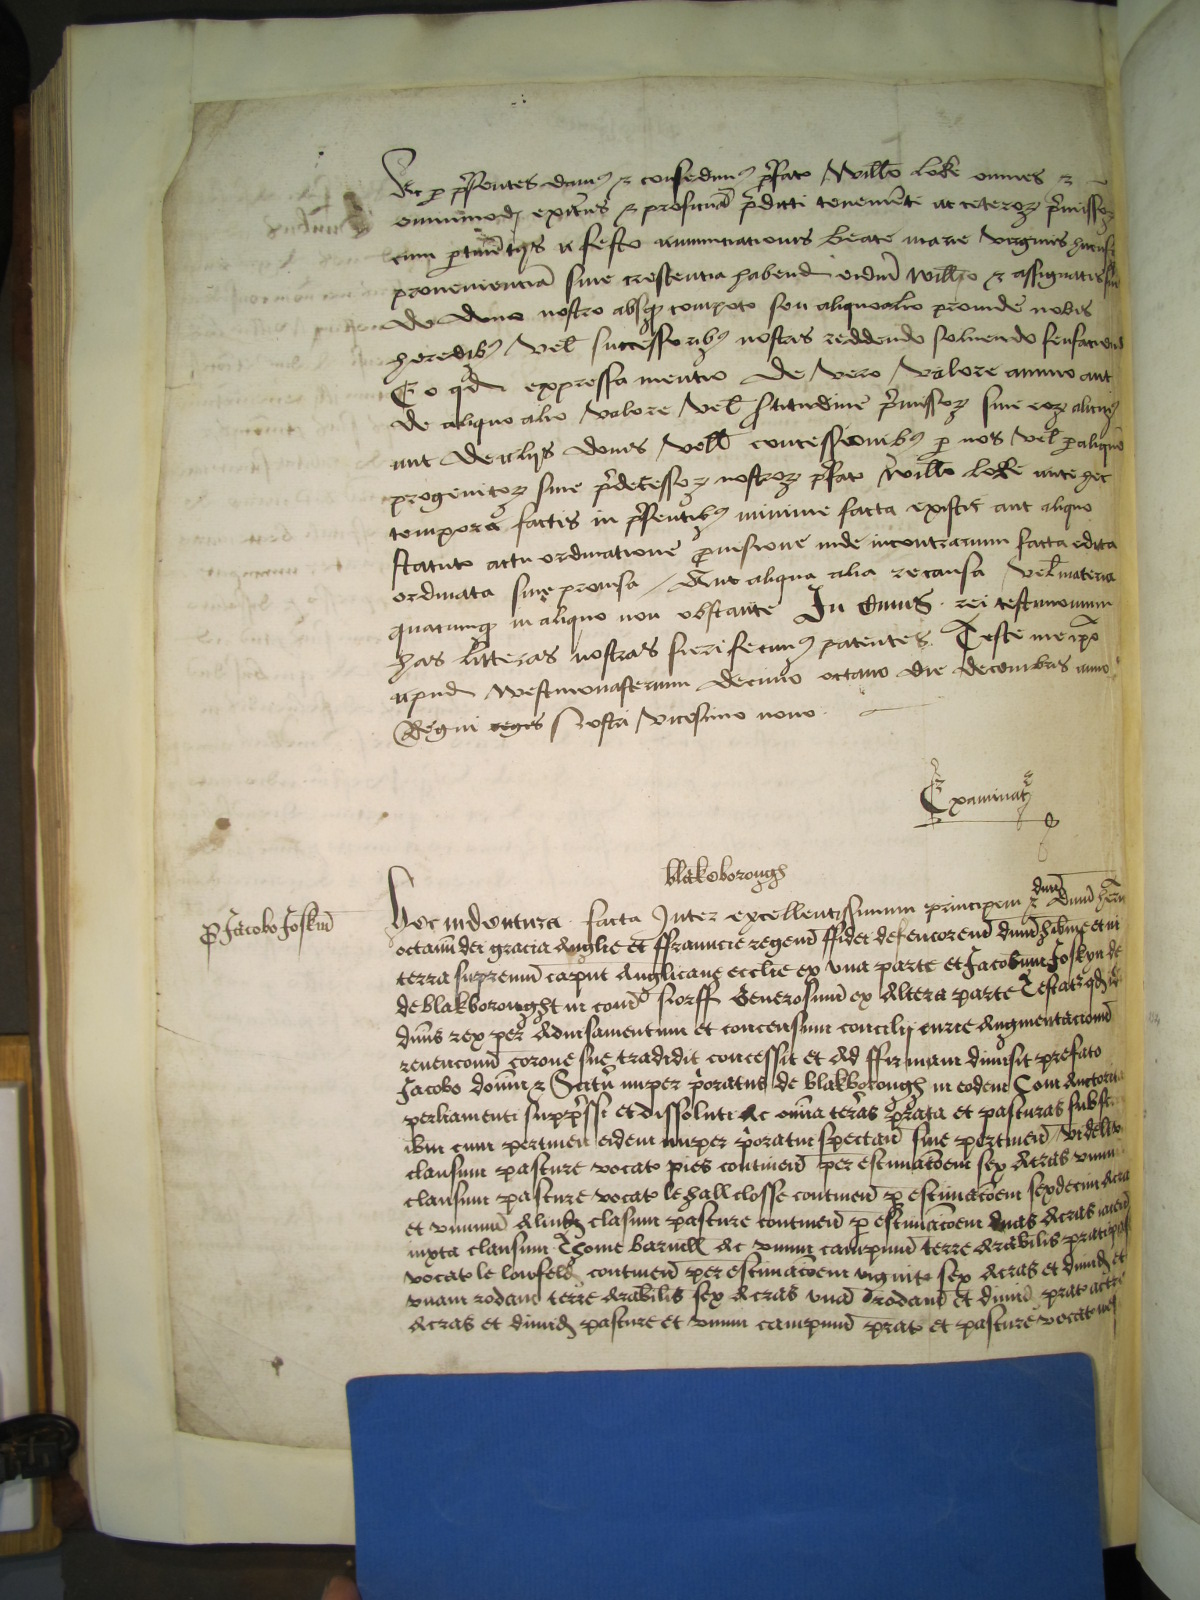 Ac p p̄sentes dam9 & consedim9 p̄fato Will̄o loke omnes &
omnimod exitus & proficua p̄dicti tenemēte ac ceterorz p̄missorz
cum p̄tinētijs a festo annunciationis beate marie virginis
provenientiā sive crescentia habend eidm̄ Will̄o & assignatis
de dono nostro absqz compoto seu aliquo alio proinde nobis
heredib9 vel successorib9 nostris reddendo solvendo
Eo qd expressa mentio de vero valore annuo aut
de aliquo alio valore vel c̄titudine p̄missorz sive eorz
aut de alijs donis concessionib9 p nos vel p aliquē
progenitorz sive p̄decessorz nostrorz p̄fato Will̄o loke ante hec
tempora factis in p̄sentib9 minime facta existit aut aliquo
statuto actu ordinatione p̄visione inde incontrarium facta edita
ordinata sive provisa Aut aliqua alia re causa vel materia
quacumqz in aliquo non obstante In Cuius rei testimonium
has litteras nostras fieri fecim9 patentes Teste me ip̄o
apud Westmonasterium decimo octavo die decembris anno
Regni regis Nostri vicesimo nono
Examinat
blakeborough
P Jacobo Joskin̄
Hec indentura facta Inter excellentissimum principem & dnū dnū
octavū dei gracia Anglie et ffrauncie regem̄ ffidei defencorem̄ dnū hib̄nie et in
terra supremū caput Anglicane ecclie ex una parte et Jacobum Joskyn de
de blakborought in com̄ Norff Generosum ex Altera parte Testatr qd
dnūs rex per Advisamentum et concensum concilij curie Augmentacionū
revencionū corone sue tradidit concessit et Ad ffirmam dimisit prefato
Jacobo domū & Scitū nuper p̄oratus de blakborough in eodem Com Auctorita
perliamenti supp̄ssi et dissoluti Ac om̄ia teras p̄rata et pasturas
ib̄m cum pertinen eidem nuper p̄oratui spectan̄ sive pertinen̄
clausum pasture vocat pies continen̄ per estimac̄oem sex Acras
clausum pasture vocat le hall closse continen̄ p estimac̄oem sexdecim Acras
et unum Aliud clasum pasture continen̄ p estimac̄oem duas Acras
iuxta clausum Thome Ac unum campum terre Arabilis
vocat le lowfeld continen̄ per estimac̄oem viginti sex Acras et dimid et
unam rodam terre Arabilis sex Acras unā Rodam et dimid prati
Acras et dimid pasture et unum campum prati et pasture vocat